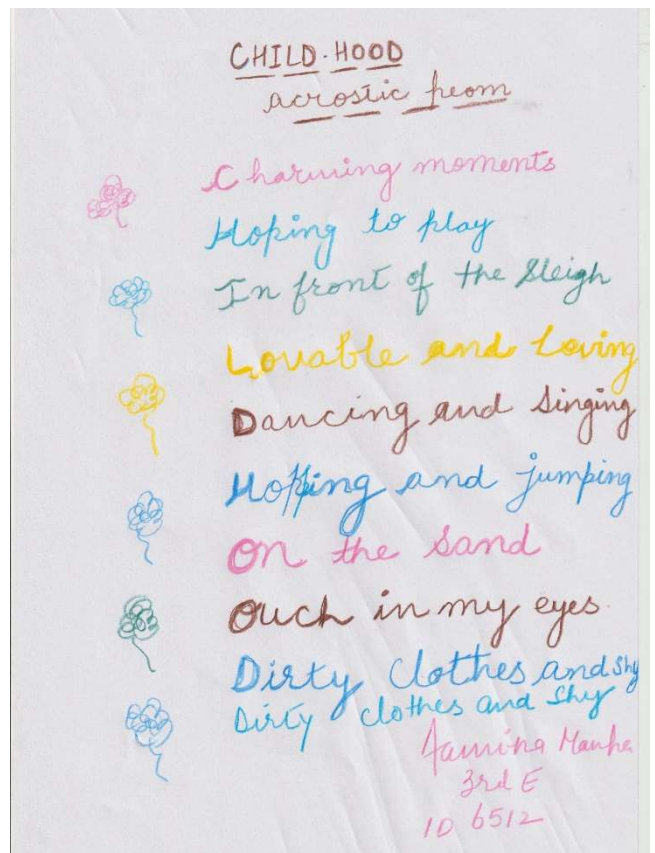 CHILD-HOOD
acrostic peom
Charming moments
Hoping to play
In front of the sleigh
Lovable and Loving
Dancing and singing
Hopping and jumping
On the sand
Ouch in my eyes.
Dirty clothes and shy
Dirty clothes and shy
Manha
3rd E
ID 6512